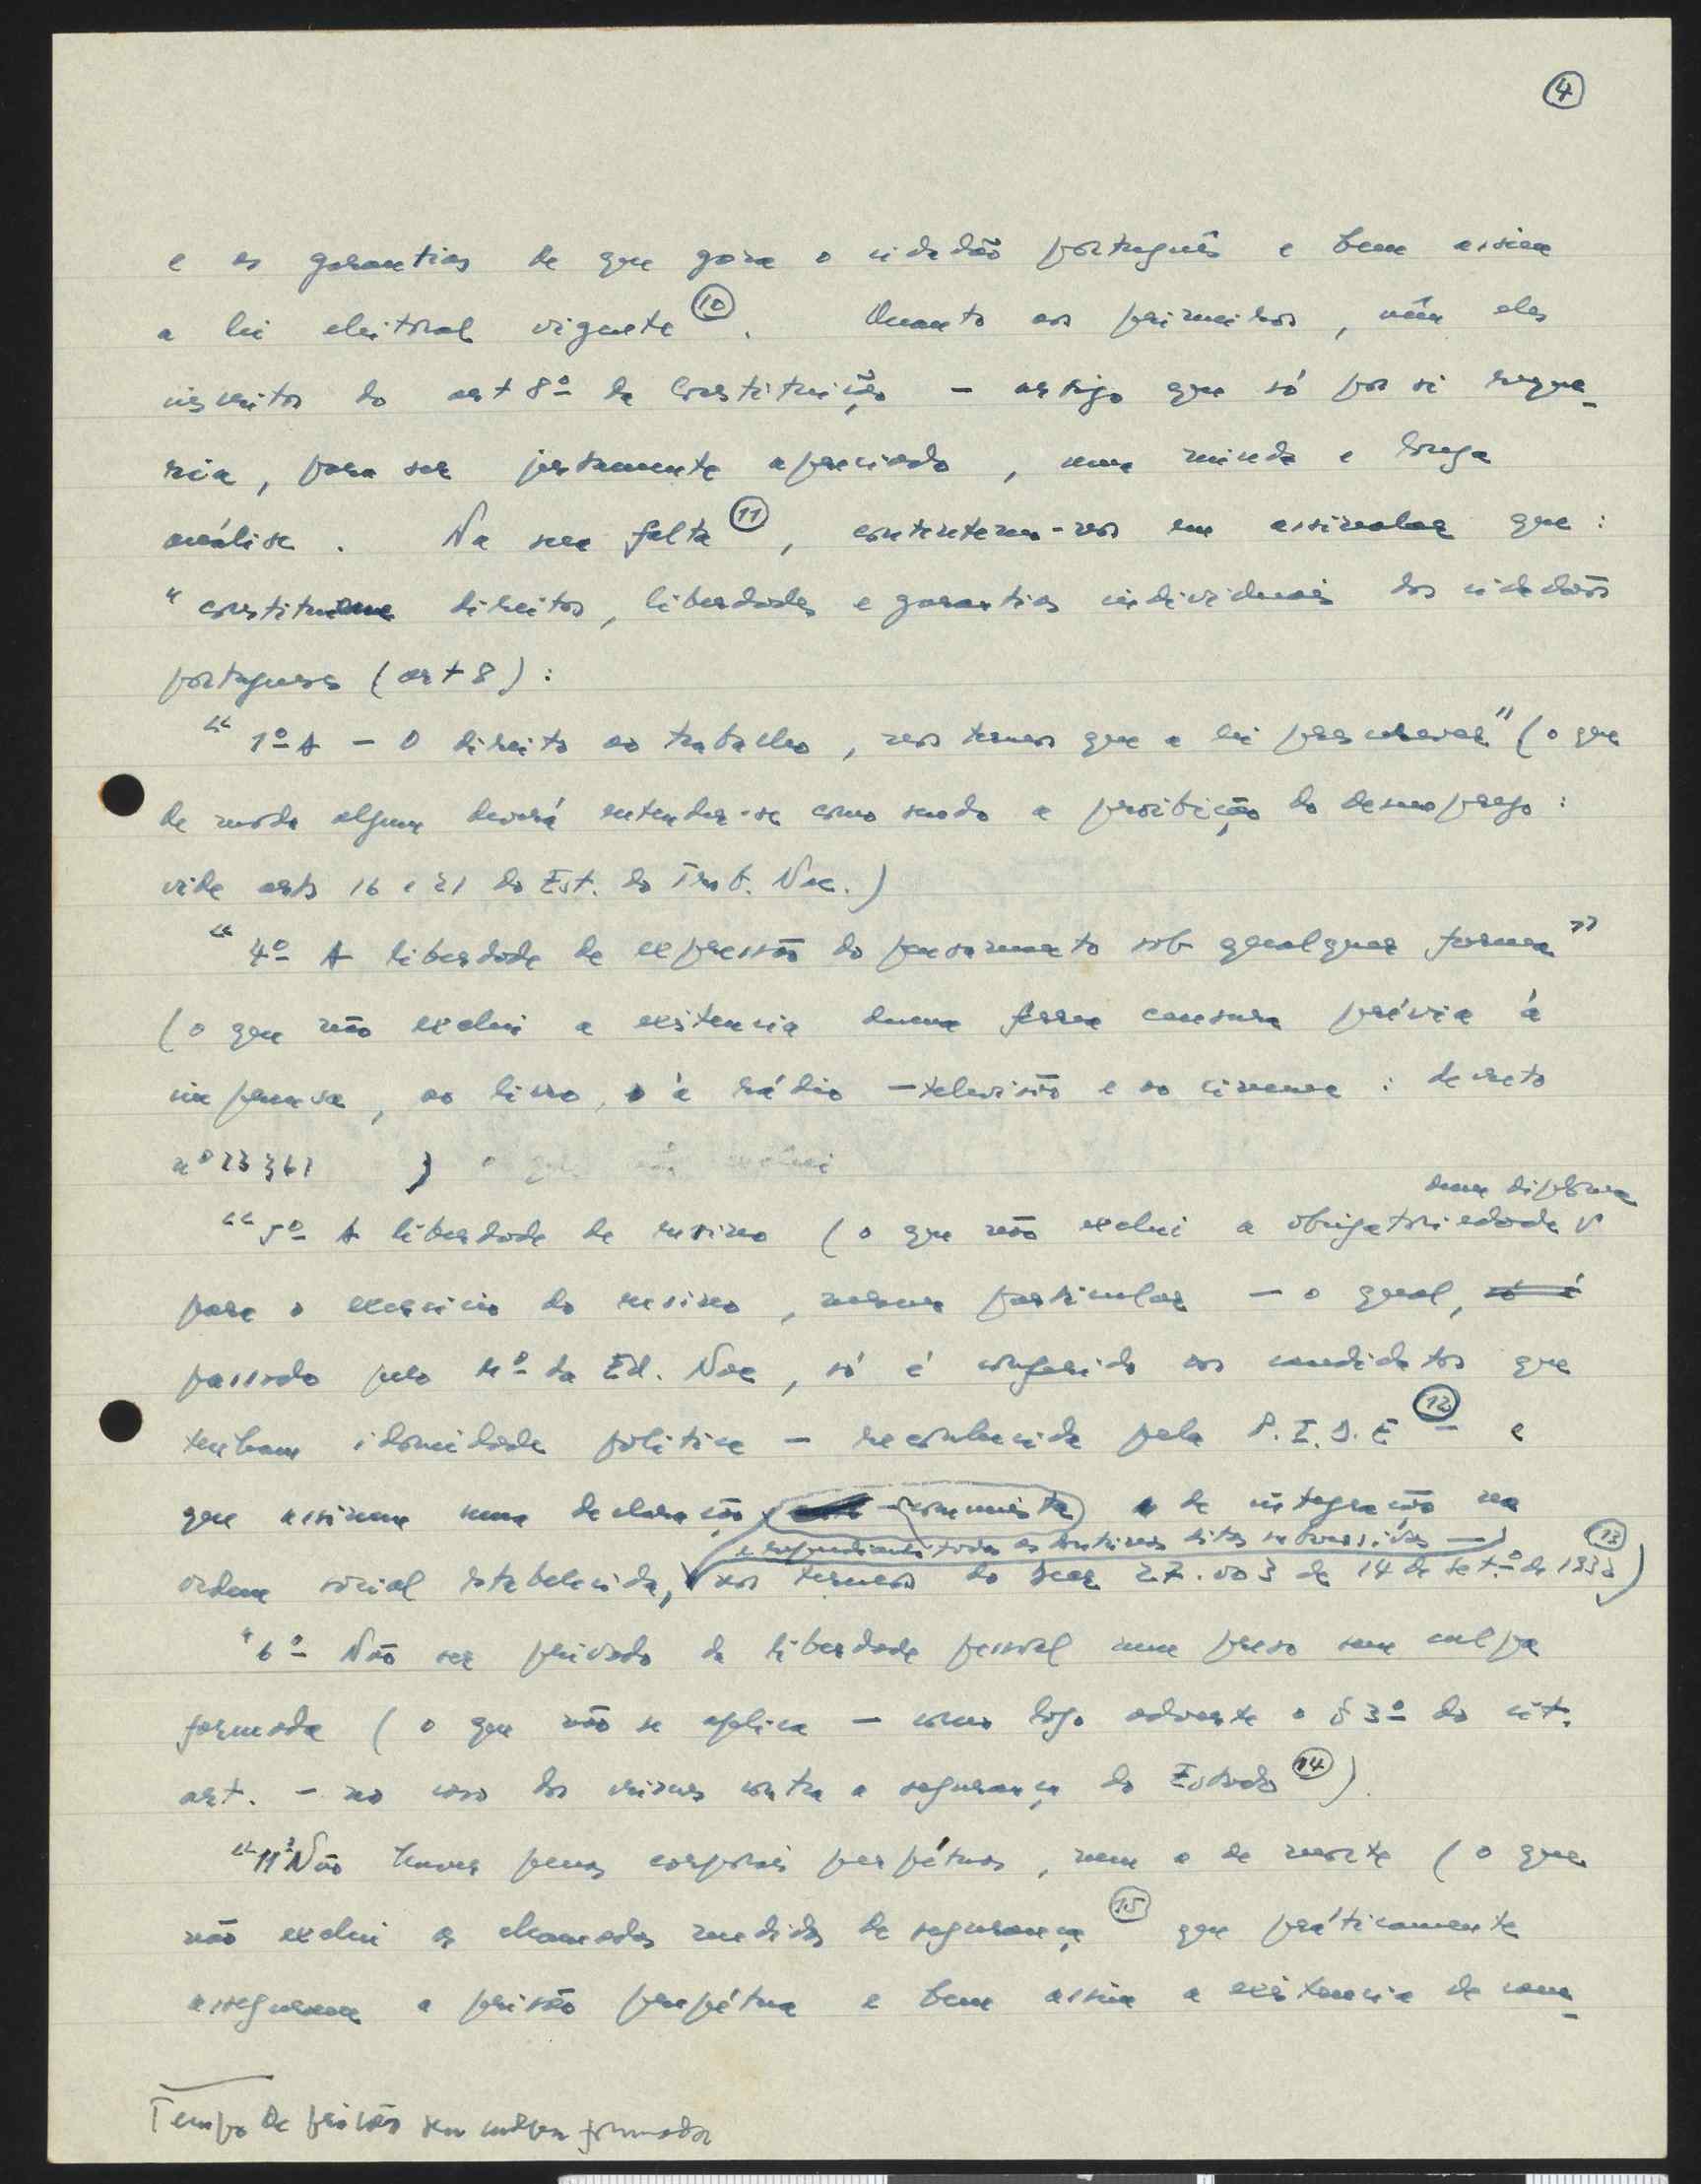 4
e as garantias de que goza o cidadão português e bem assim
a lei eleitoral vigente (10). Quanto aos primeiros, vêm eles
inscritos do art 8º da Constituição – artigo que só por si reque-
ria, para ser justamente apreciado, uma miuda e longa
análise. Na sua falta (11), contentemo-nos em assinalar que:
"constituem direitos, liberdades e garantias individuais dos cidadãos
portugueses (art 8):
"1º A – O direito ao trabalho, nos termos que a lei prescrever" (o que
de modo algum deverá entender-se como sendo a proibição do desemprego:
vide arts 16 e 21 do Est. do Trab. Nac.)
"4º A liberdade de expressão do pensamento sob qualquer forma"
(o que não exclui a existencia duma ferrea censura prévia á
imprensa, ao livro, á rádio – televisão e ao cinema: decreto
nº 23 361 ) o que não exclui
dum diploma
"5º A liberdade de ensino (o que não exclui a obrigatoriedade
para o exercicio do ensino, mesmo particular – o qual, só é
passado pelo Mº da Ed. Nac, só é conferido aos candidatos que
tenham idoneidade politica – reconhecida pela P.I.D.E (12) – e
que assinem uma declaração comunista de integração na
e repudiando todas as doutrinas ditas subversivas – (13)
ordem social estabelecida, nos termos do Decr 27.003 de 14 de Setº de 1936)
"6º Não ser privado da liberdade pessoal nem preso sem culpa
formada (o que não se aplica – como logo adverte o § 3º do cit.
art. – no caso dos crimes contra a segurança do Estado (14))
"11º Não haver penas corporais perpétuas, nem a de morte (o que
não exclui as chamadas medidas de segurança (15) que práticamente
asseguram a prisão perpétua e bem assim a existencia de cam-
Tempo de prisão sem culpa formada